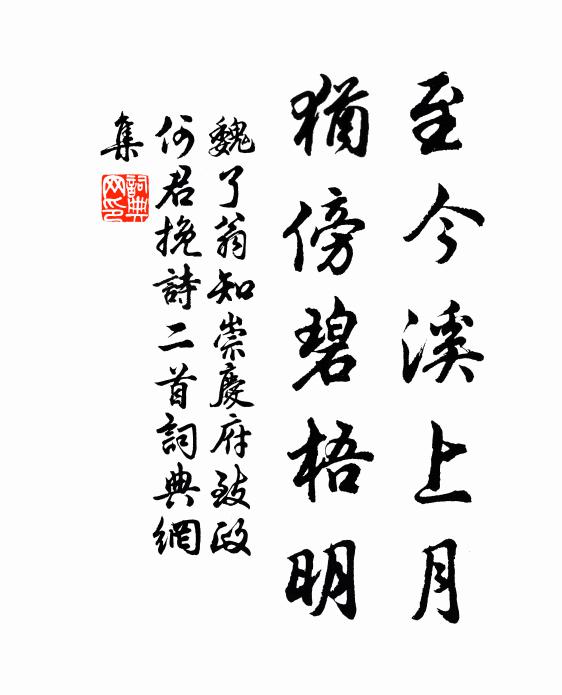 至今溪上月
猶傍碧梧明
魏了翁知崇慶府致政
何君挽詩二首詞典網
集
詞典
网印